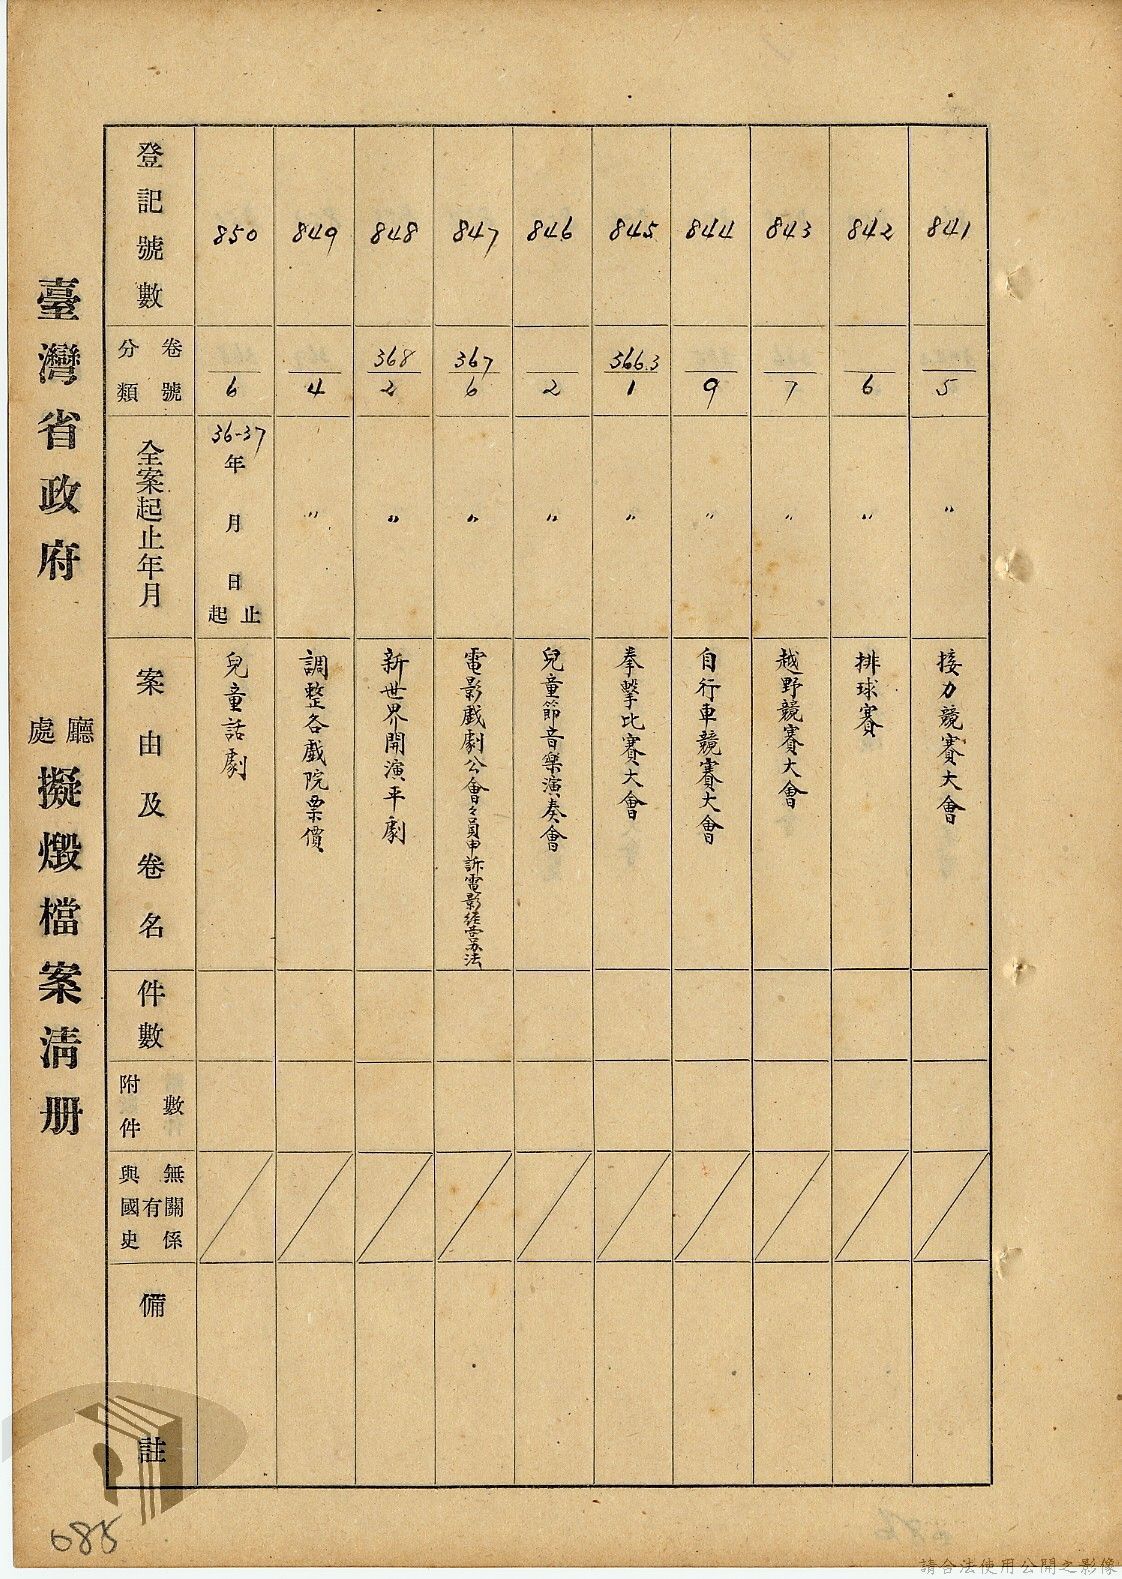 臺灣省政府 廳處 擬燬檔案清册
登記號數
分類 卷號
全案起止年月
案由及卷名
件數
附件 數
與國史 有 無關係
備註
850
6
36-37年 月 日 起止
兒童話劇
849
4
〃
調整各戲院票價
848
368
2
〃
新世界開演平劇
847
367
6
〃
電影戲劇公會々員申訴電影經营办法
846
2
〃
兒童節音樂演奏會
845
366.3
1
〃
拳擊比賽大會
844
9
〃
自行車競賽大會
843
7
〃
越野競賽大會
842
6
〃
排球賽
841
5
〃
接力競賽大會
085
請合法使用公開之影像